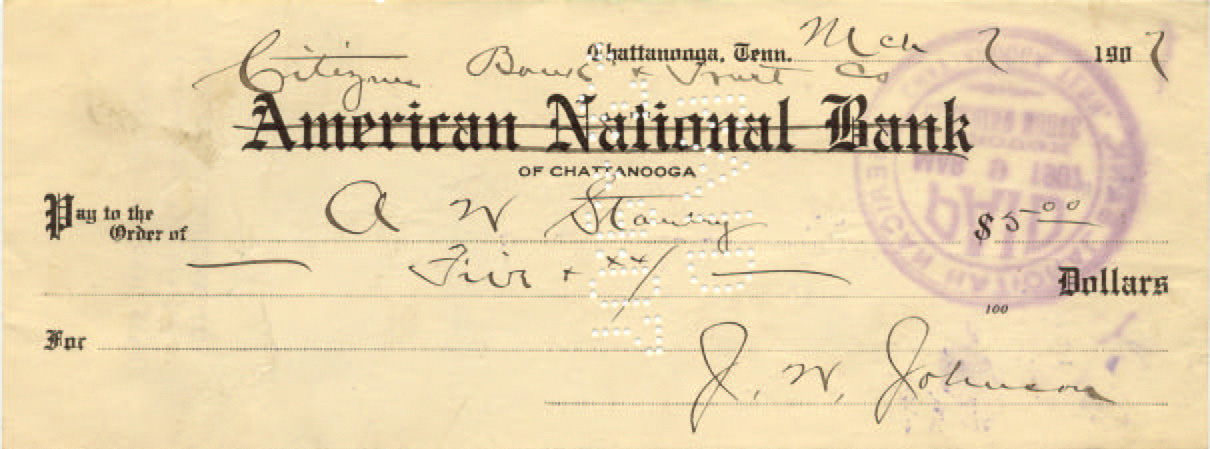 Chattanooga, Tenn. Mch 7 1907
Citizens Bank & Trust Co
American National Bank
OF CHATTANOOGA
Pay to the
Order of A W Stanley $5 00
Five & xx/
100
Dollars
For
J. W. Johnson